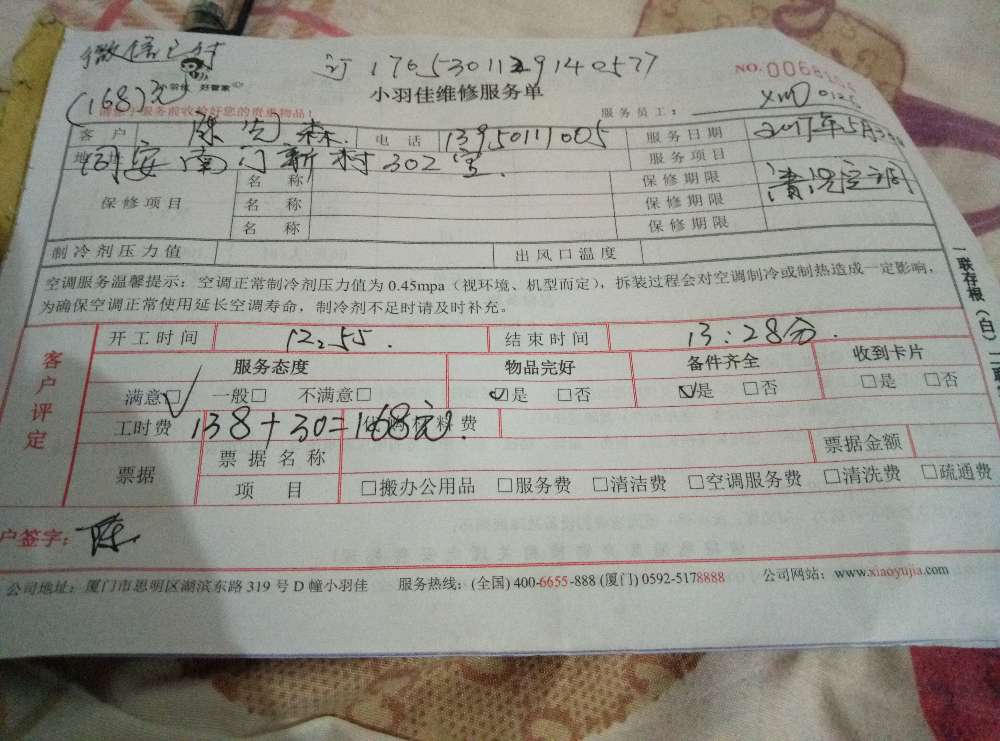 微信已付
订 1705301129140577
NO. 0068
(168)元
小羽佳 好管家
小羽佳维修服务单
请您于服务前收拾好您的贵重物品!
服务员工: XMD0126
客户 陈 森. 电话 13950111005 服务日期 2017年5月
地址 同安南门新村302室. 服务项目 清洗空调
保修项目 名称 保修期限
名称 保修期限
名称 保修期限
制冷剂压力值 出风口温度
空调服务温馨提示:空调正常制冷剂压力值为 0.45mpa(视环境、机型而定),拆装过程会对空调制冷或制热造成一定影响,
为确保空调正常使用延长空调寿命,制冷剂不足时请及时补充。
一联存根(白)二联
客户评定
开工时间 12.55. 结束时间 13:28分
服务态度 物品完好 备件齐全 收到卡片
满意☑ 一般□ 不满意□ ☑是 □否 ☑是 □否 □是 □否
工时费 138+30=168元. 材料费
票据 票据名称 票据金额
项目 □搬办公用品 □服务费 □清洁费 □空调服务费 □清洗费 □疏通费
户签字: 陈
公司地址:厦门市思明区湖滨东路 319 号 D 幢小羽佳 服务热线:(全国) 400-6655-888 (厦门) 0592-5178888 公司网站:www.xiaoyujia.com